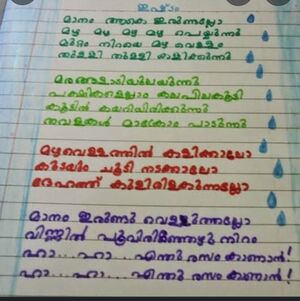 ഇഷ്ടം
മാനം ആകെ ഇരുണ്ടല്ലോ
മഴ മഴ മഴ മഴ പെയ്യുന്നു
മുറ്റം നിറയെ മഴ വെള്ളം
തുള്ളി തുള്ളി കളിക്കുന്നു
പക്ഷികളെല്ലാം കലപിലകൂട്ടി
കൂട്ടിൽ കയറിയിരിക്കുന്നു
തവളകൾ മാക്രോം പാടുന്നു
മഴവെള്ളത്തിൽ കളിക്കാലോ
കുടയും ചൂടി നടക്കാലോ
ദേഹത്ത് കുളിരിളകുന്നല്ലോ
മാനം ഇരുണ്ടു വെളുക്കുന്നല്ലോ
വിണ്ണിൽ പൂവിരിഞ്ഞേഴു നിറം
ഹാ... ഹാ... എന്തു രസം കാണാൻ!
ഹാ... ഹാ... എന്തു രസം കാണാൻ!